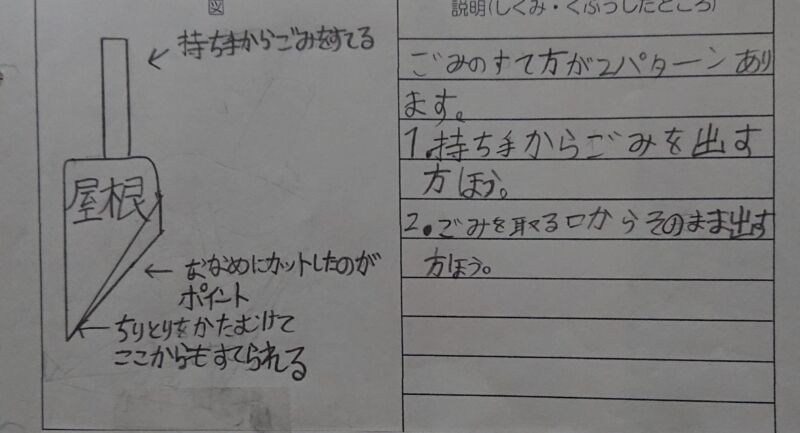 図
持ち手からごみをすてる
屋根
ななめにカットしたのが
ポイント
ちりとりをかたむけて
ここからもすてられる
説明(しくみ・くふうしたところ)
ごみのすて方が2パターンあり
ます。
1.持ち手からごみを出す
方ほう。
2.ごみを取る口からそのまま出す
方ほう。